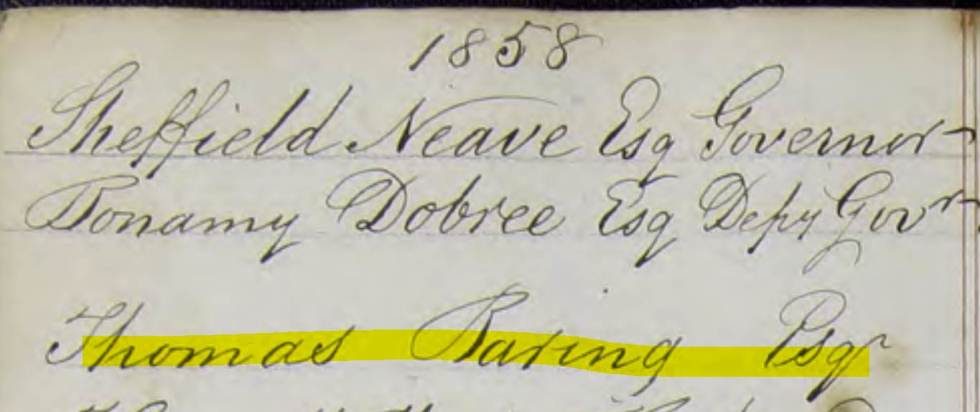 1858
Sheffield Neave Esq Governor
Bonamy Dobree Esq Depy Govr
Thomas Baring Esqr